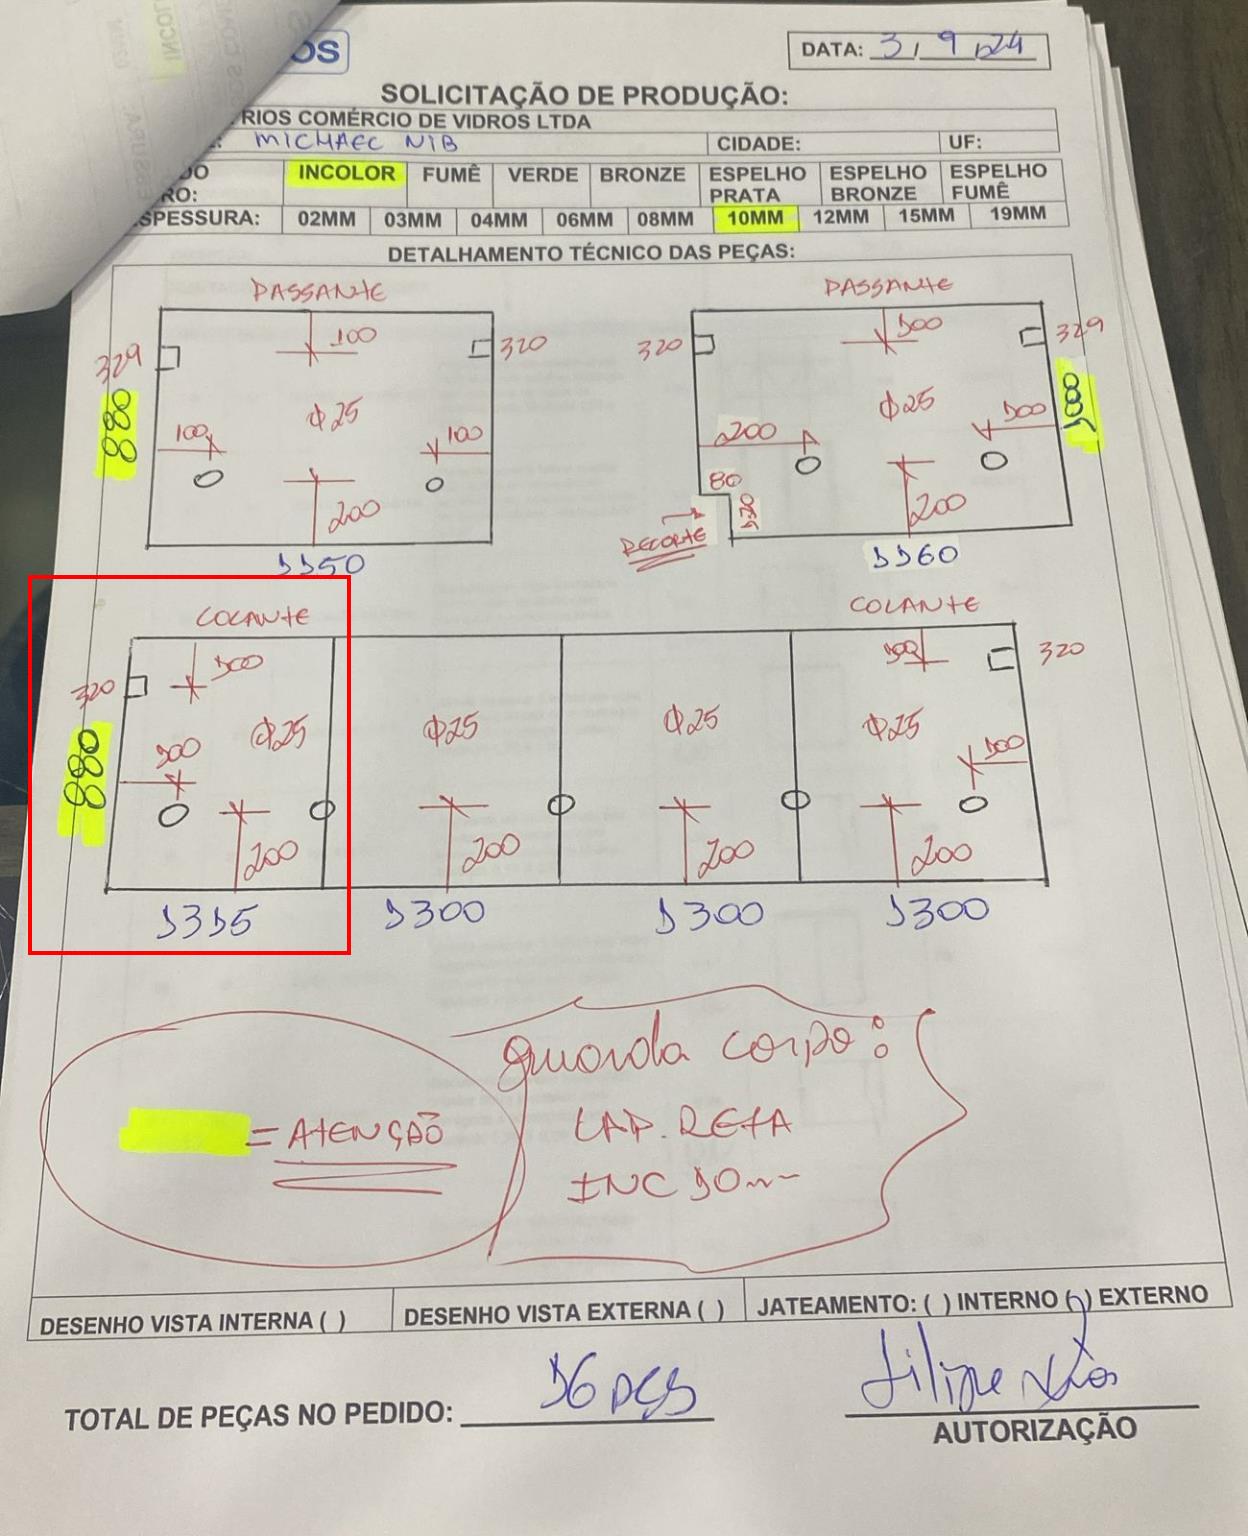 OS
DATA: 3/ 9 /24
SOLICITAÇÃO DE PRODUÇÃO:
RIOS COMÉRCIO DE VIDROS LTDA
MICHAEL NIB CIDADE: UF:
INCOLOR FUMÊ VERDE BRONZE ESPELHO PRATA ESPELHO BRONZE ESPELHO FUMÊ
RO:
SPESSURA: 02MM 03MM 04MM 06MM 08MM 10MM 12MM 15MM 19MM
DETALHAMENTO TÉCNICO DAS PEÇAS:
PASSANTE
329
100
320
880
Φ25
100
100
200
1150
PASSANTE
320
100
329
1000
Φ25
200
100
80
120
200
RECORTE
1160
COLANTE
320
100
880
100
Φ25
200
1315
Φ25
200
1300
Φ25
200
1300
COLANTE
100
320
Φ25
100
200
1300
= ATENÇÃO
guarda corpo:
LAP. RETA
INC 10mm
DESENHO VISTA INTERNA ( ) DESENHO VISTA EXTERNA ( ) JATEAMENTO: ( ) INTERNO ( ) EXTERNO
TOTAL DE PEÇAS NO PEDIDO: 16 PÇS
AUTORIZAÇÃO